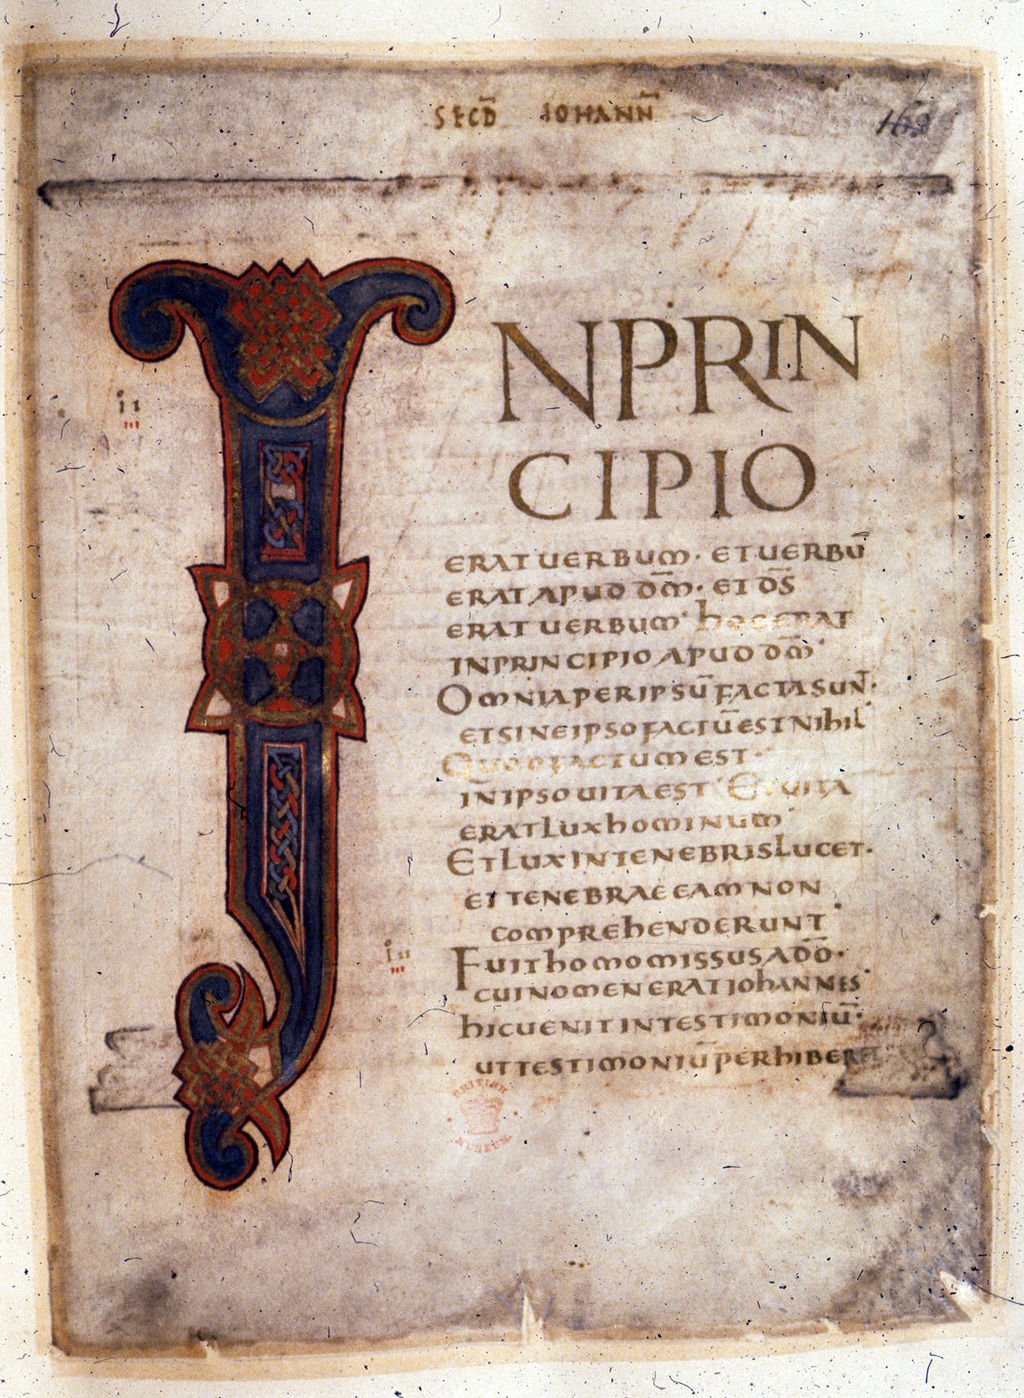 SECD̄ IOHANN̄
162
INPRIN
CIPIO
ERAT UERBUM · ET UERBŪ
ERAT APUD DM̄ · ET DS̄
ERAT UERBUM · hOC ERAT
IN PRINCIPIO APUD DM̄ ·
OMNIA PER IPSŪ FACTA SUN̄ ·
ET SINE IPSO FACTŪ EST NIhIL
QUOD FACTUM EST ·
IN IPSO UITA EST · ET UITA
ERAT LUX hOMINUM ·
ET LUX IN TENEBRIS LUCET ·
ET TENEBRAE EAM NON
COMPREhENDERUNT ·
FUIT hOMO MISSUS A DŌ ·
CUI NOMEN ERAT IOhANNES ·
hIC UENIT IN TESTIMONIŪ ·
UT TESTIMONIŪ PERhIBER
BRITISH MUSEUM